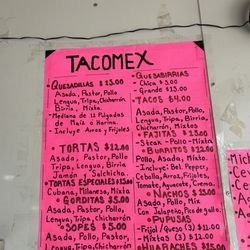 TACOMEX
QUESADILLAS $13.00
Asada, Pastor, Pollo
Lengua, Tripa, Chicharrón
Birria, Mixta.
- Mediana de 12 Pulgadas
de Maíz o Harina.
- Incluye Arroz y Frijoles
TORTAS $12.00
Asada, Pastor, Pollo
Lengua, Tripa, Birria
Jamón y Salchicha.
TORTAS ESPECIALES
Cubana, Milanesa, Mixta
GORDITAS
Asada, Pastor, Pollo
Lengua, Tripa, Chicharrón
SOPES
Asada, Pastor, Pollo
Lengua, Tripa, Chicharrón
QUESABIRRIAS
- Chica
- Grande $13.00
TACOS $4.00
Asada, Pastor, Pollo,
Lengua, Tripa, Birria,
Chicharrón, Mixtos
FAJITAS
- Steak - Pollo - Mixto
BURRITOS
Asada, Pastor, Pollo,
Cebolla, Arroz, Frijoles
Tomate, Aguacate, Crema
NACHOS
Asada, Pastor, Pollo, Mix
Con Jalapeño, Pico de gallo.
PUPUSAS
Frijol / Queso (3) $11.00
HUARACHES